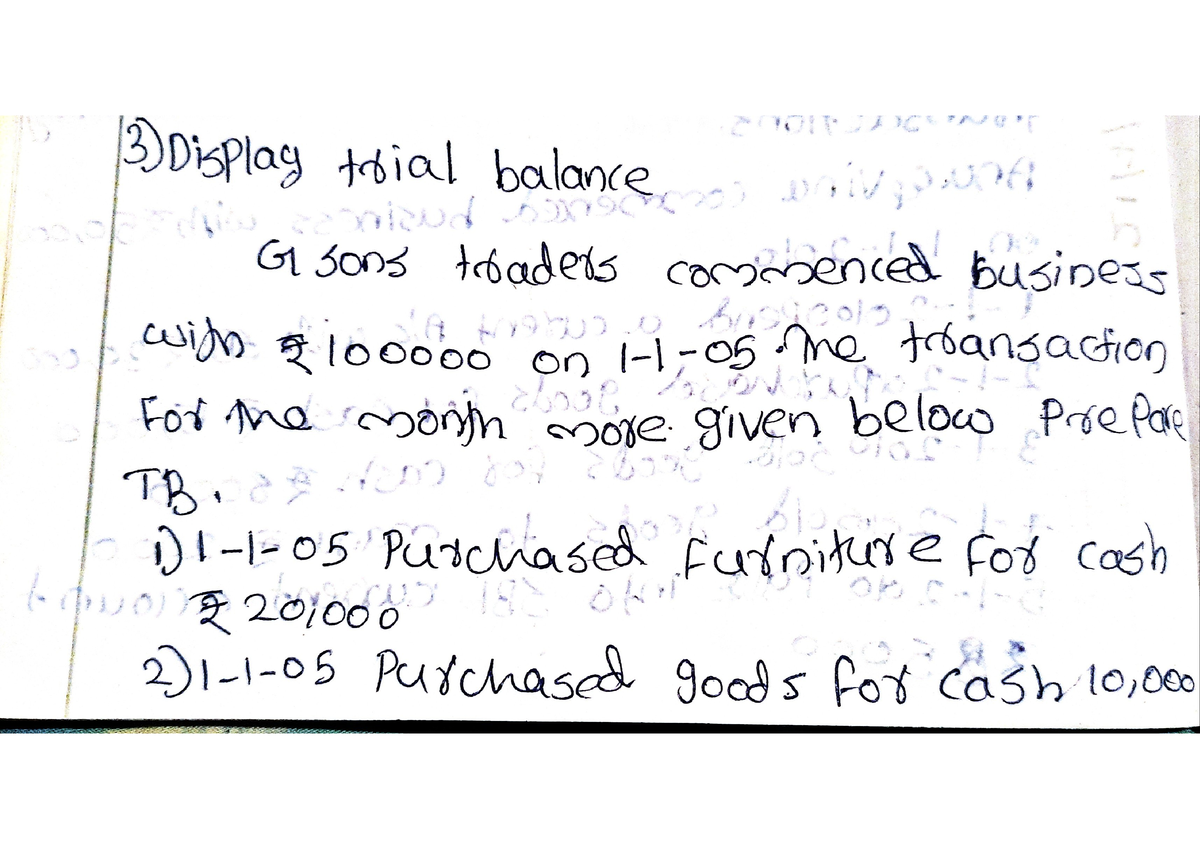 3) Display trial balance
G1 sons traders commenced business
with ₹ 100000 on 1-1-05. The transaction
For the month more given below Prepare
TB.
1) 1-1-05 Purchased furniture for cash
₹ 20,000
2) 1-1-05 Purchased goods for cash 10,000